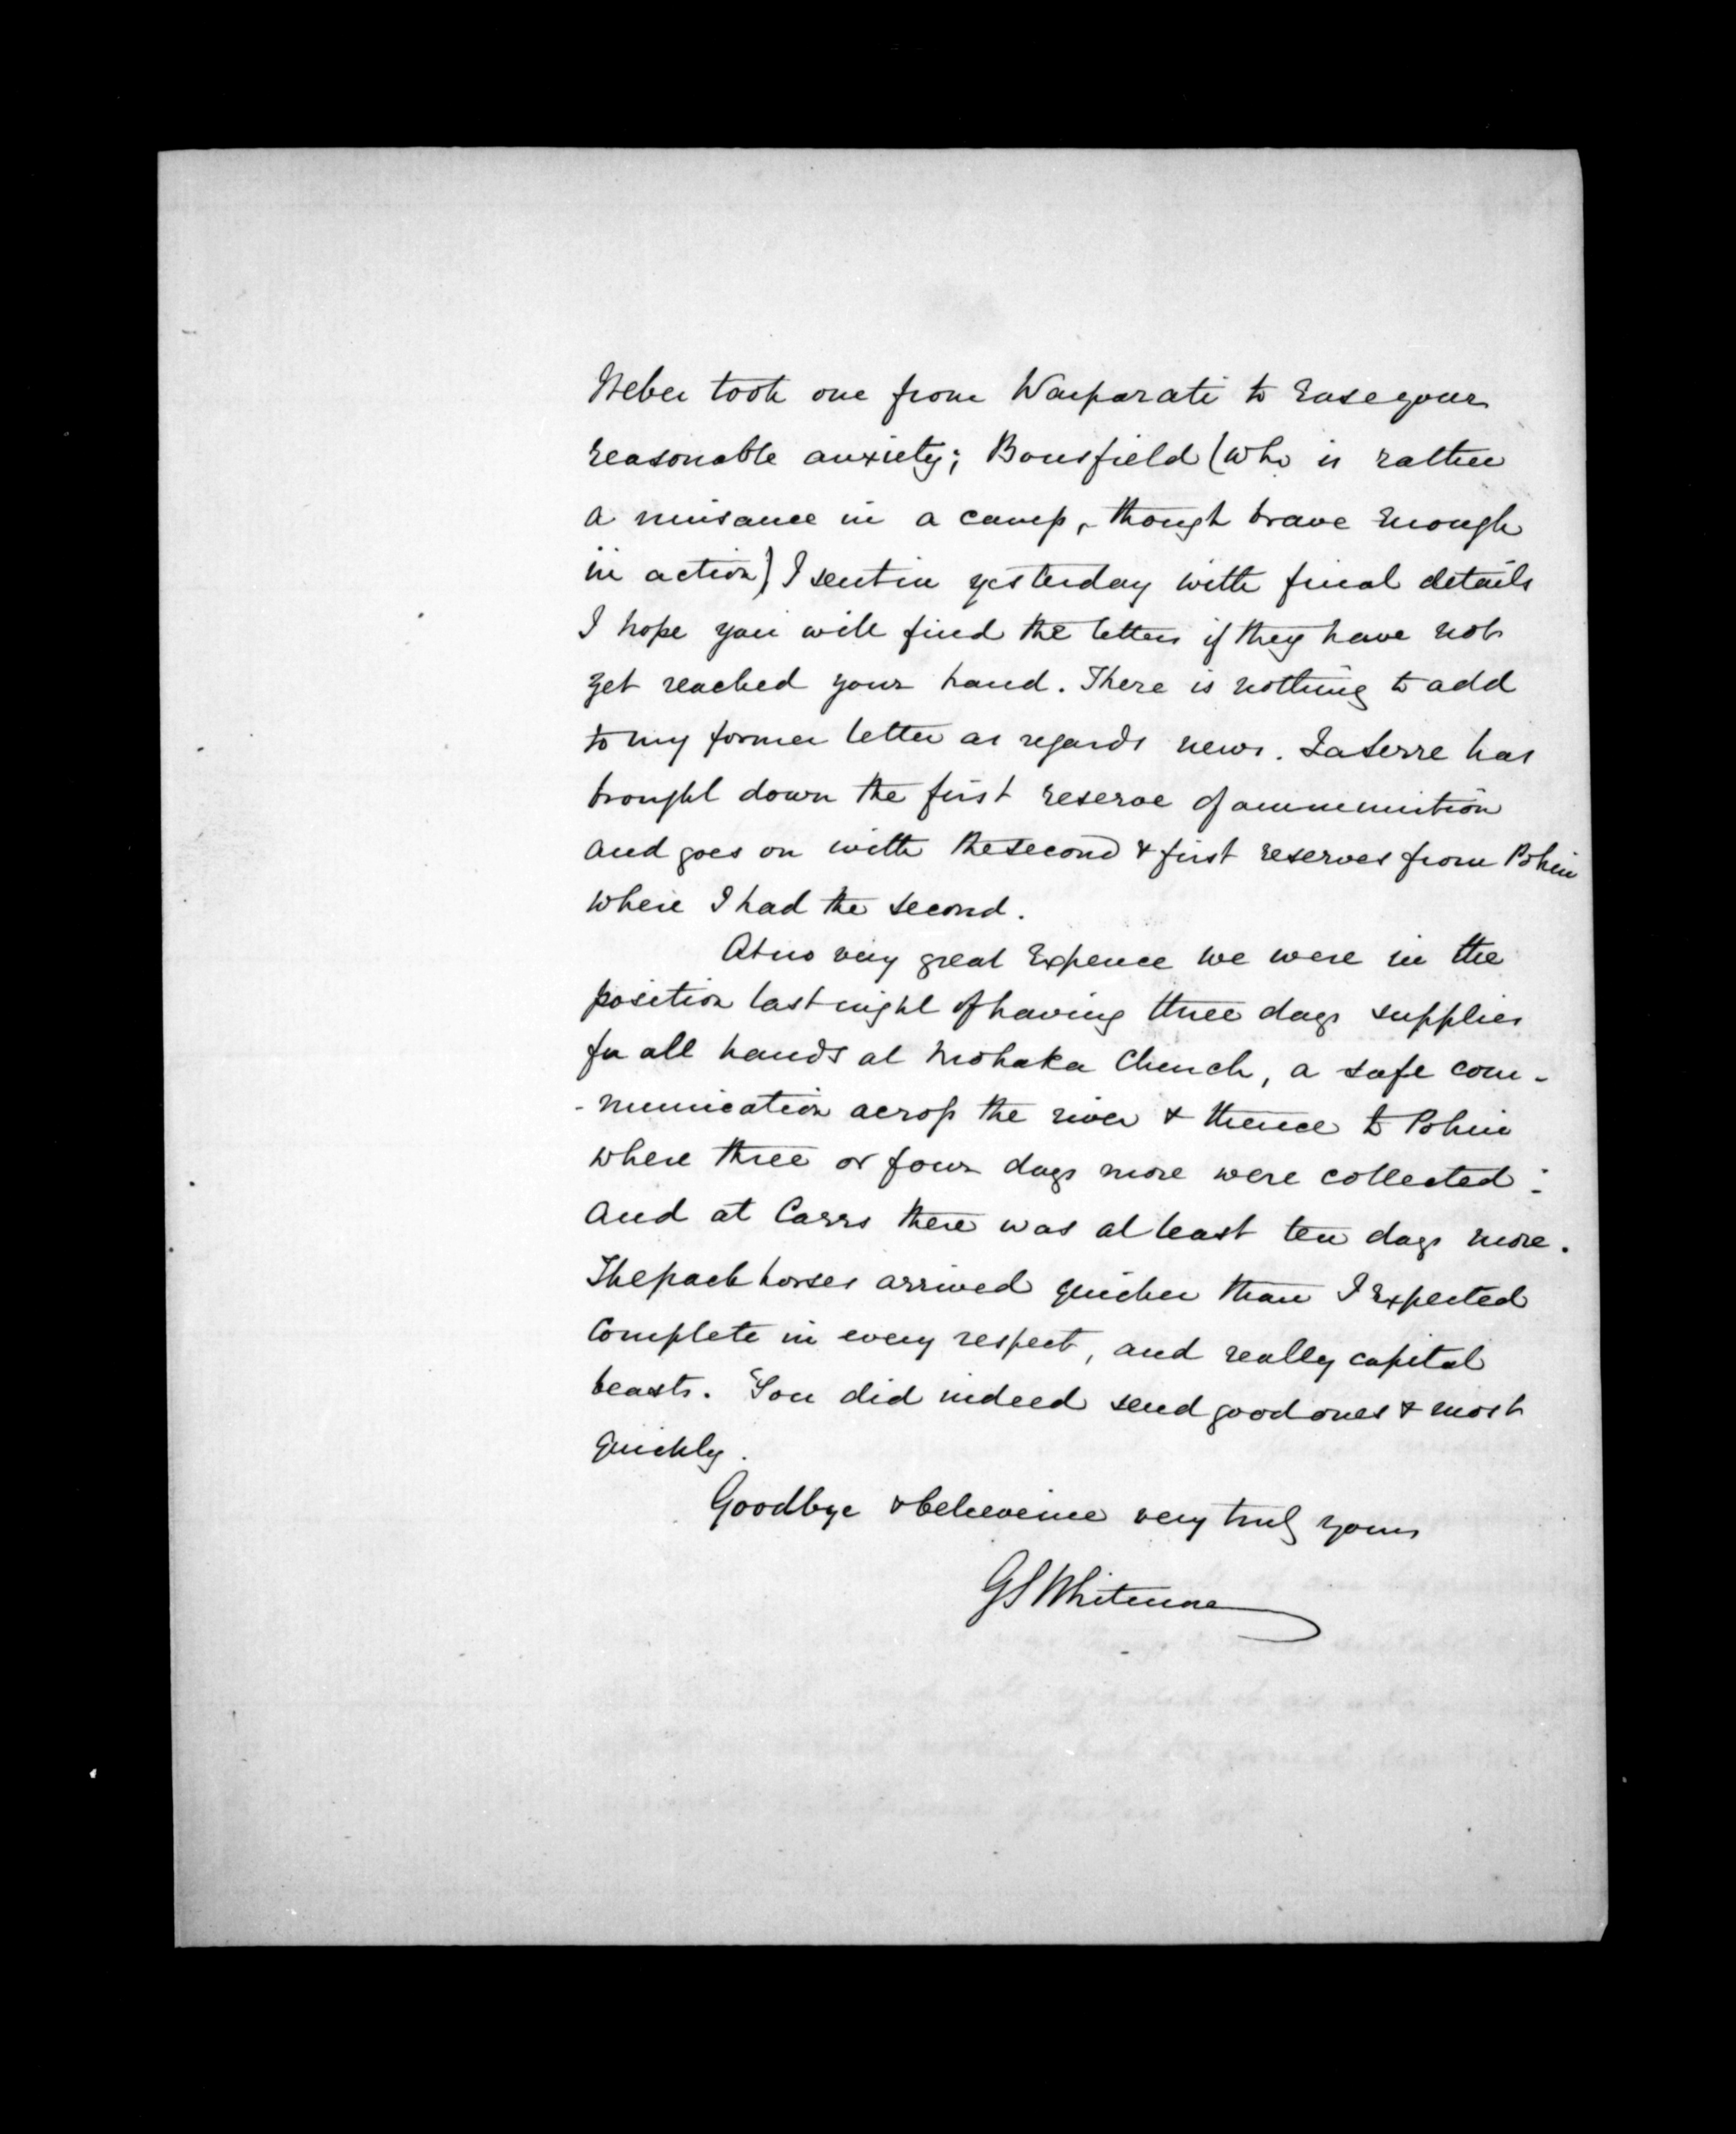 Weber took one from Waiparati to ease your
reasonable anxiety; Bousfield (who is rather
a nuisance in a camp, though brave enough
in action) I sent in yesterday with final details
I hope you will find the letters if they have not
yet reached your hand. There is nothing to add
to my former letter as regards news. LaSerre has
brought down the first reserve of ammunition
and goes on with the second & first reserves from Pohui
where I had the second.
At no very great expence we were in the
position last night of having three days supplies
for all hands at Mohaka Church, a safe com-
-munication across the river & thence to Pohui
where three or four days more were collected:
and at Carrs there was at least ten days more.
The pack horses arrived quicker than I expected
complete in every respect, and really capital
beasts. You did indeed send good ones & most
quickly.
Goodbye & believe me very truly yours
GS Whitmore